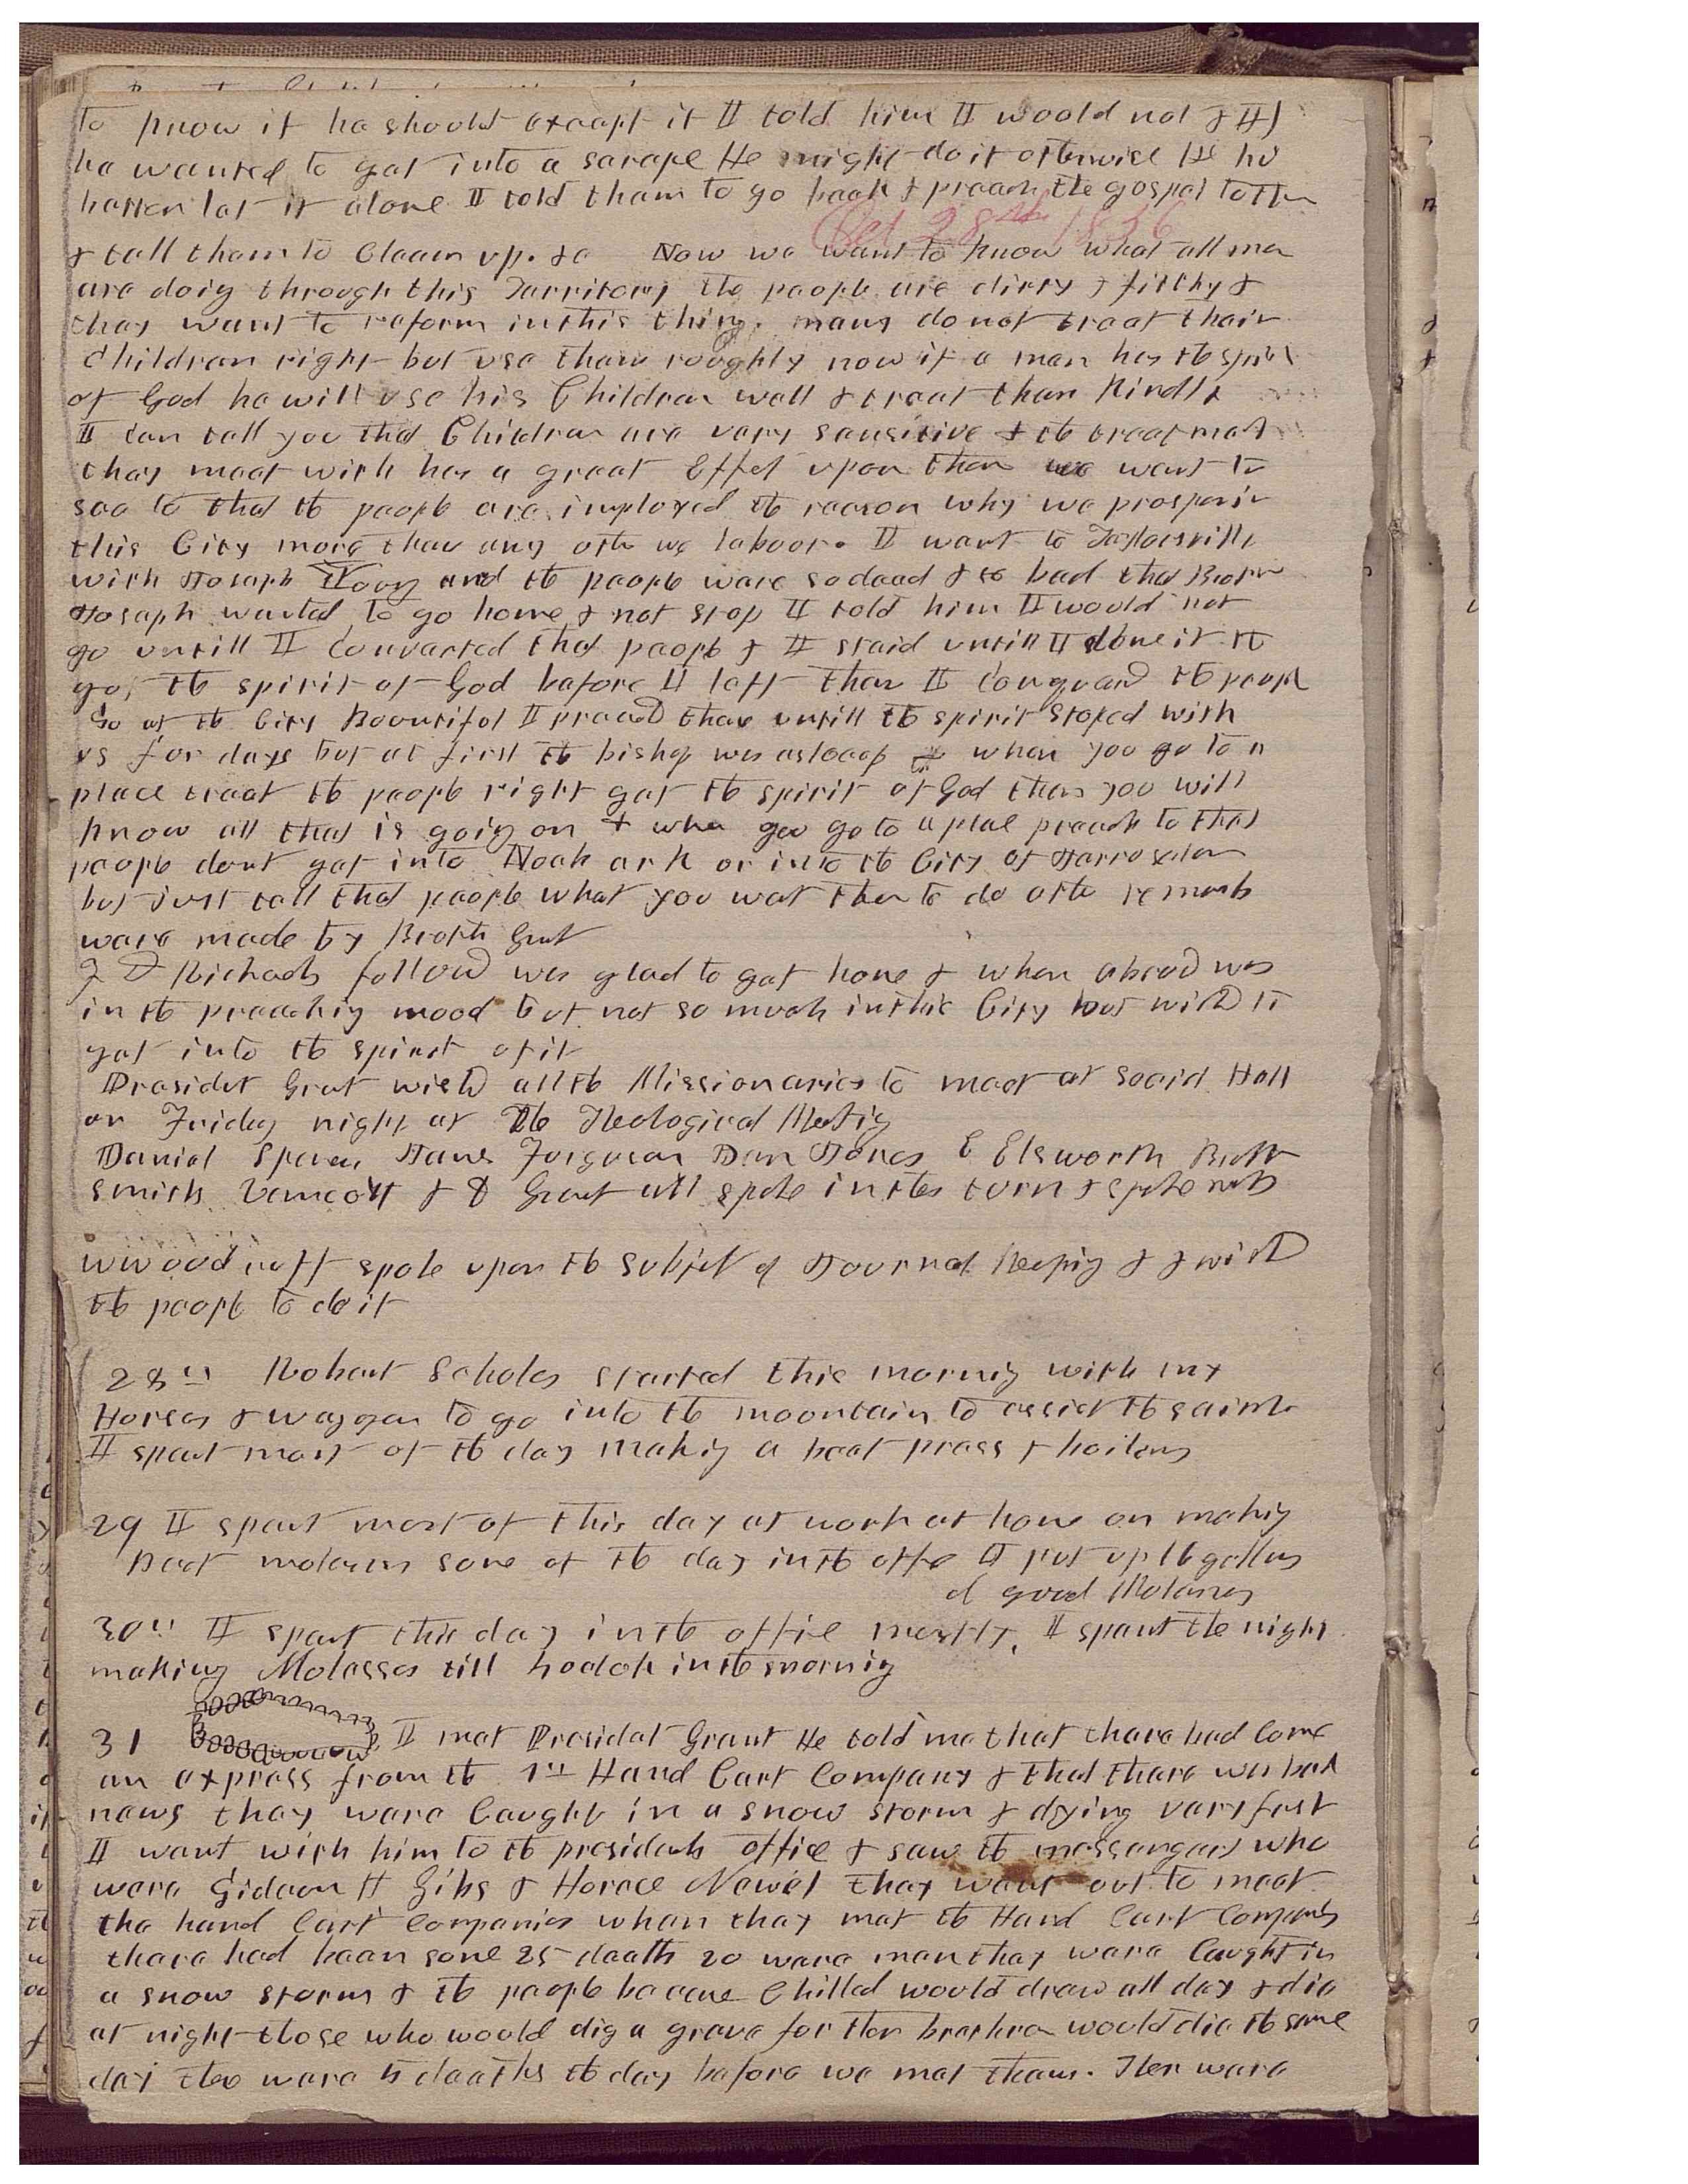 to know if he should except it I told him I would not & if
he wanted to get into a scrape He might do it otherwise He had
better let it alone I told them to go back & preach the gospel to them
Oct 28th 1856
& tell them to Cleaen up. &c Now we want to know what all men
are doig through this Territory the people are dirty & filthy &
they want to reform in this thing. many do not treat their
Children right but use them roughly now if a man has the spirit
of God he will use his Children well & treat them Kindly
I can tell you that Children are very sensitive & the treatmet
they meet with has a great Effet upon them we want to
see to that the people are imployed the reason why we prosper in
this City more than any othe we laboor. I went to Taylorsville
with Joseph Young and the people ware so dead & so bad that Brother
Joseph wanted to go home & not stop I told him I would not
go untill I Converted that people & I staid untill I done it & 
got the spirit of God before I left them I Conquerd the people
So at the City Bountiful I preachd there untill the spirit stoped with
us for days but at first the bishop was asleeep when you go to a
place treat the people right get the spirit of God then you will
know all that is goig on & when you go to a place preach to that
people dont get into Noah ark or into the City of Jerrusalem
but just tell that people what you wat them to do othe remarks
ware made by Brothe Grat
F D Richads followd was glad to get home & when abroad was
in the preachig mood but not so much in this City but wishd to
get into the spirit of it
Presidet Grat wishd all the Missionaries to meet at Social Hall
on Friday night at the Theological Meetig
Daniel Spencer James Ferguson Dan Jones E Elsworth Broth
Smith Vancott & J Grant all spoke in thes turn & spoke well
W Woodruff spoke upon the Subjet of Journal Keepig & wishd
the people to do it
28th Robert Scholes started this mornig with my
Horses & waggon to go into the mountain to assist the saints
I spent most of the day Makig a beet press & boilers
29 I spent most of this day at work at home on makig
Beet molasses some of the day in the offie I put up 16 gallons
of good Molasses
30th I spent this day in the offie mostly. I spent the night
making Molasses till in the mornig
31 I met Presidet Grant He told me that there had Come
an express from the 1st Hand Cart Company & that there was bad
news they ware Caught in a snow storm & dying very fast
I went with him to the presidents office & saw the messengers who
were Gideon H Gibs & Horace Newel they went out to meet
the hand Cart Companies when they met the Hand Cart Companies
there had been some 25 deaths 20 ware men they ware Caught in
a snow storm & the people became Chilled would draw all day & die
at night those who would dig a grave for ther brethren would die the same
day thee ware 15 deaths the day before we met them. Ther ware